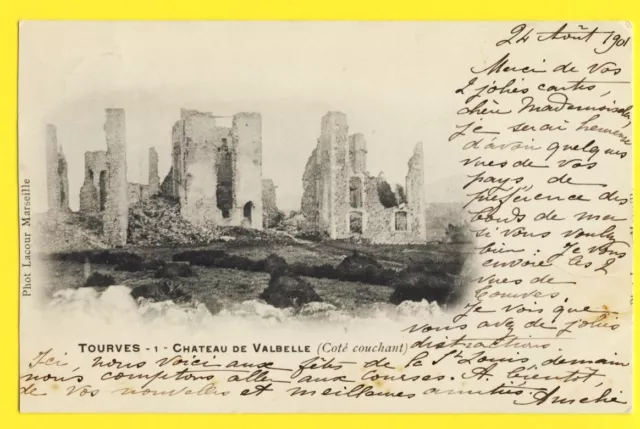 24 Août 1901
Merci de vos
2 jolies cartes,
chère Mademoiselle,
je serai heureuse
d'avoir quelques
vues de vos
pays, de
préférence des
bords de mer
si vous voulez
bien. Je vous
envoie ces 2
vues de
Tourves.
Je vois que
vous avez de jolies
distractions.
Ici, nous voici aux fêtes de la St Louis, demain
nous comptons aller aux courses. A bientôt,
de vos nouvelles et meilleures amitiés.
Phot Lacour Marseille
TOURVES - 1 - CHATEAU DE VALBELLE (Coté couchant)